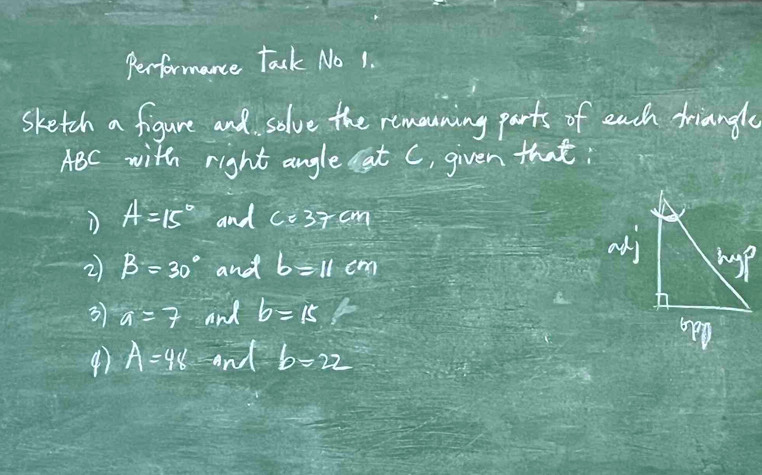 Performance Task No 1.
Sketch a figure and solve the remaining parts of each triangle
ABC with right angle at C, given that:
1) A = 15° and c = 37 cm
2) B = 30° and b = 11 cm
3) a = 7 and b = 15
4) A = 48 and b = 22
adj
hyp
opp